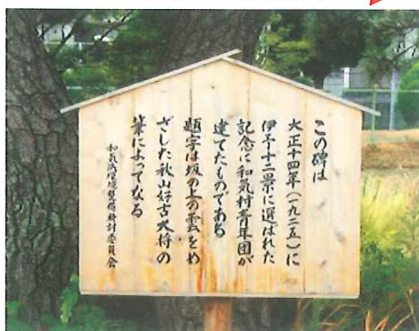 この碑は
大正十四年(一九二五)に
伊予十二景に選ばれた
記念に和気村青年団が
建てたものである
題字は坂の上の雲をめ
ざした秋山好古大将の
筆によってなる
和気浜環境整備検討委員会